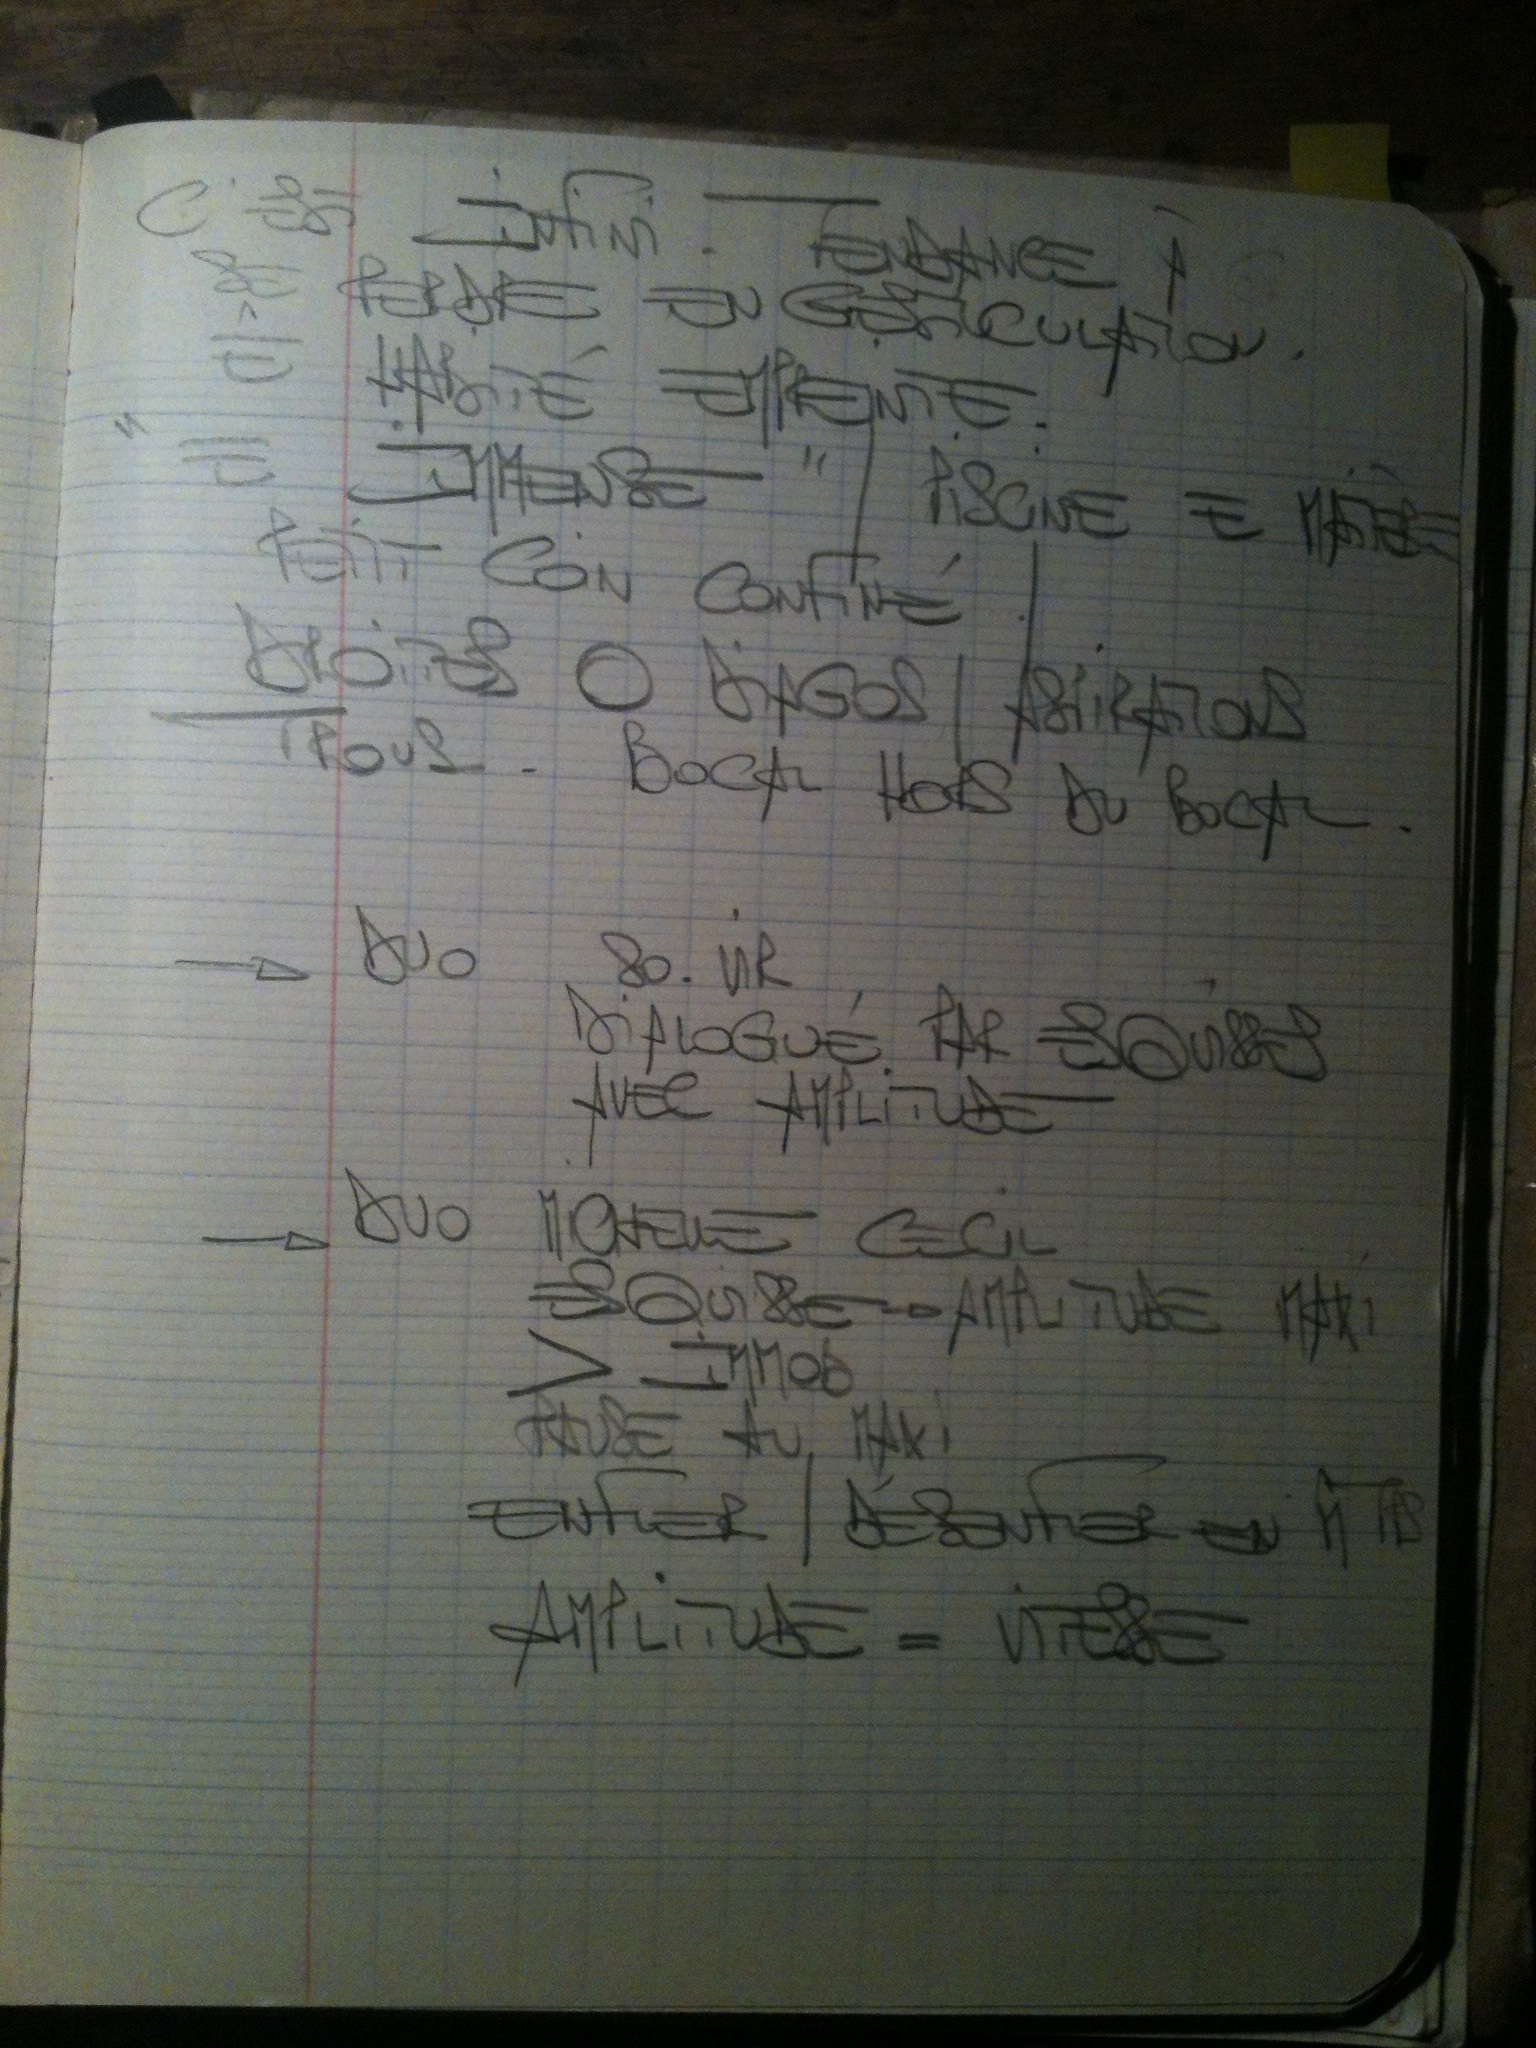 C'EST INFINI. TENDANCE À
SE PERDRE EN GESTICULATION.
> E HABITÉ EMPREINTE.
"E IMMENSE" PISCINE E
PETIT COIN CONFINÉ.
DROITES O DIAGOS | ASPIRATIONS
TROUS. BOCAL HORS DU BOCAL.
→ DUO SO. VIR
DIALOGUÉ PAR ESQUISSES
AVEC AMPLITUDE
→ DUO CECIL
ESQUISSE → AMPLITUDE MAXI
> IMMOB
PAUSE AU MAXI
ENFLER / DÉSENFLER EN
AMPLITUDE = VITESSE